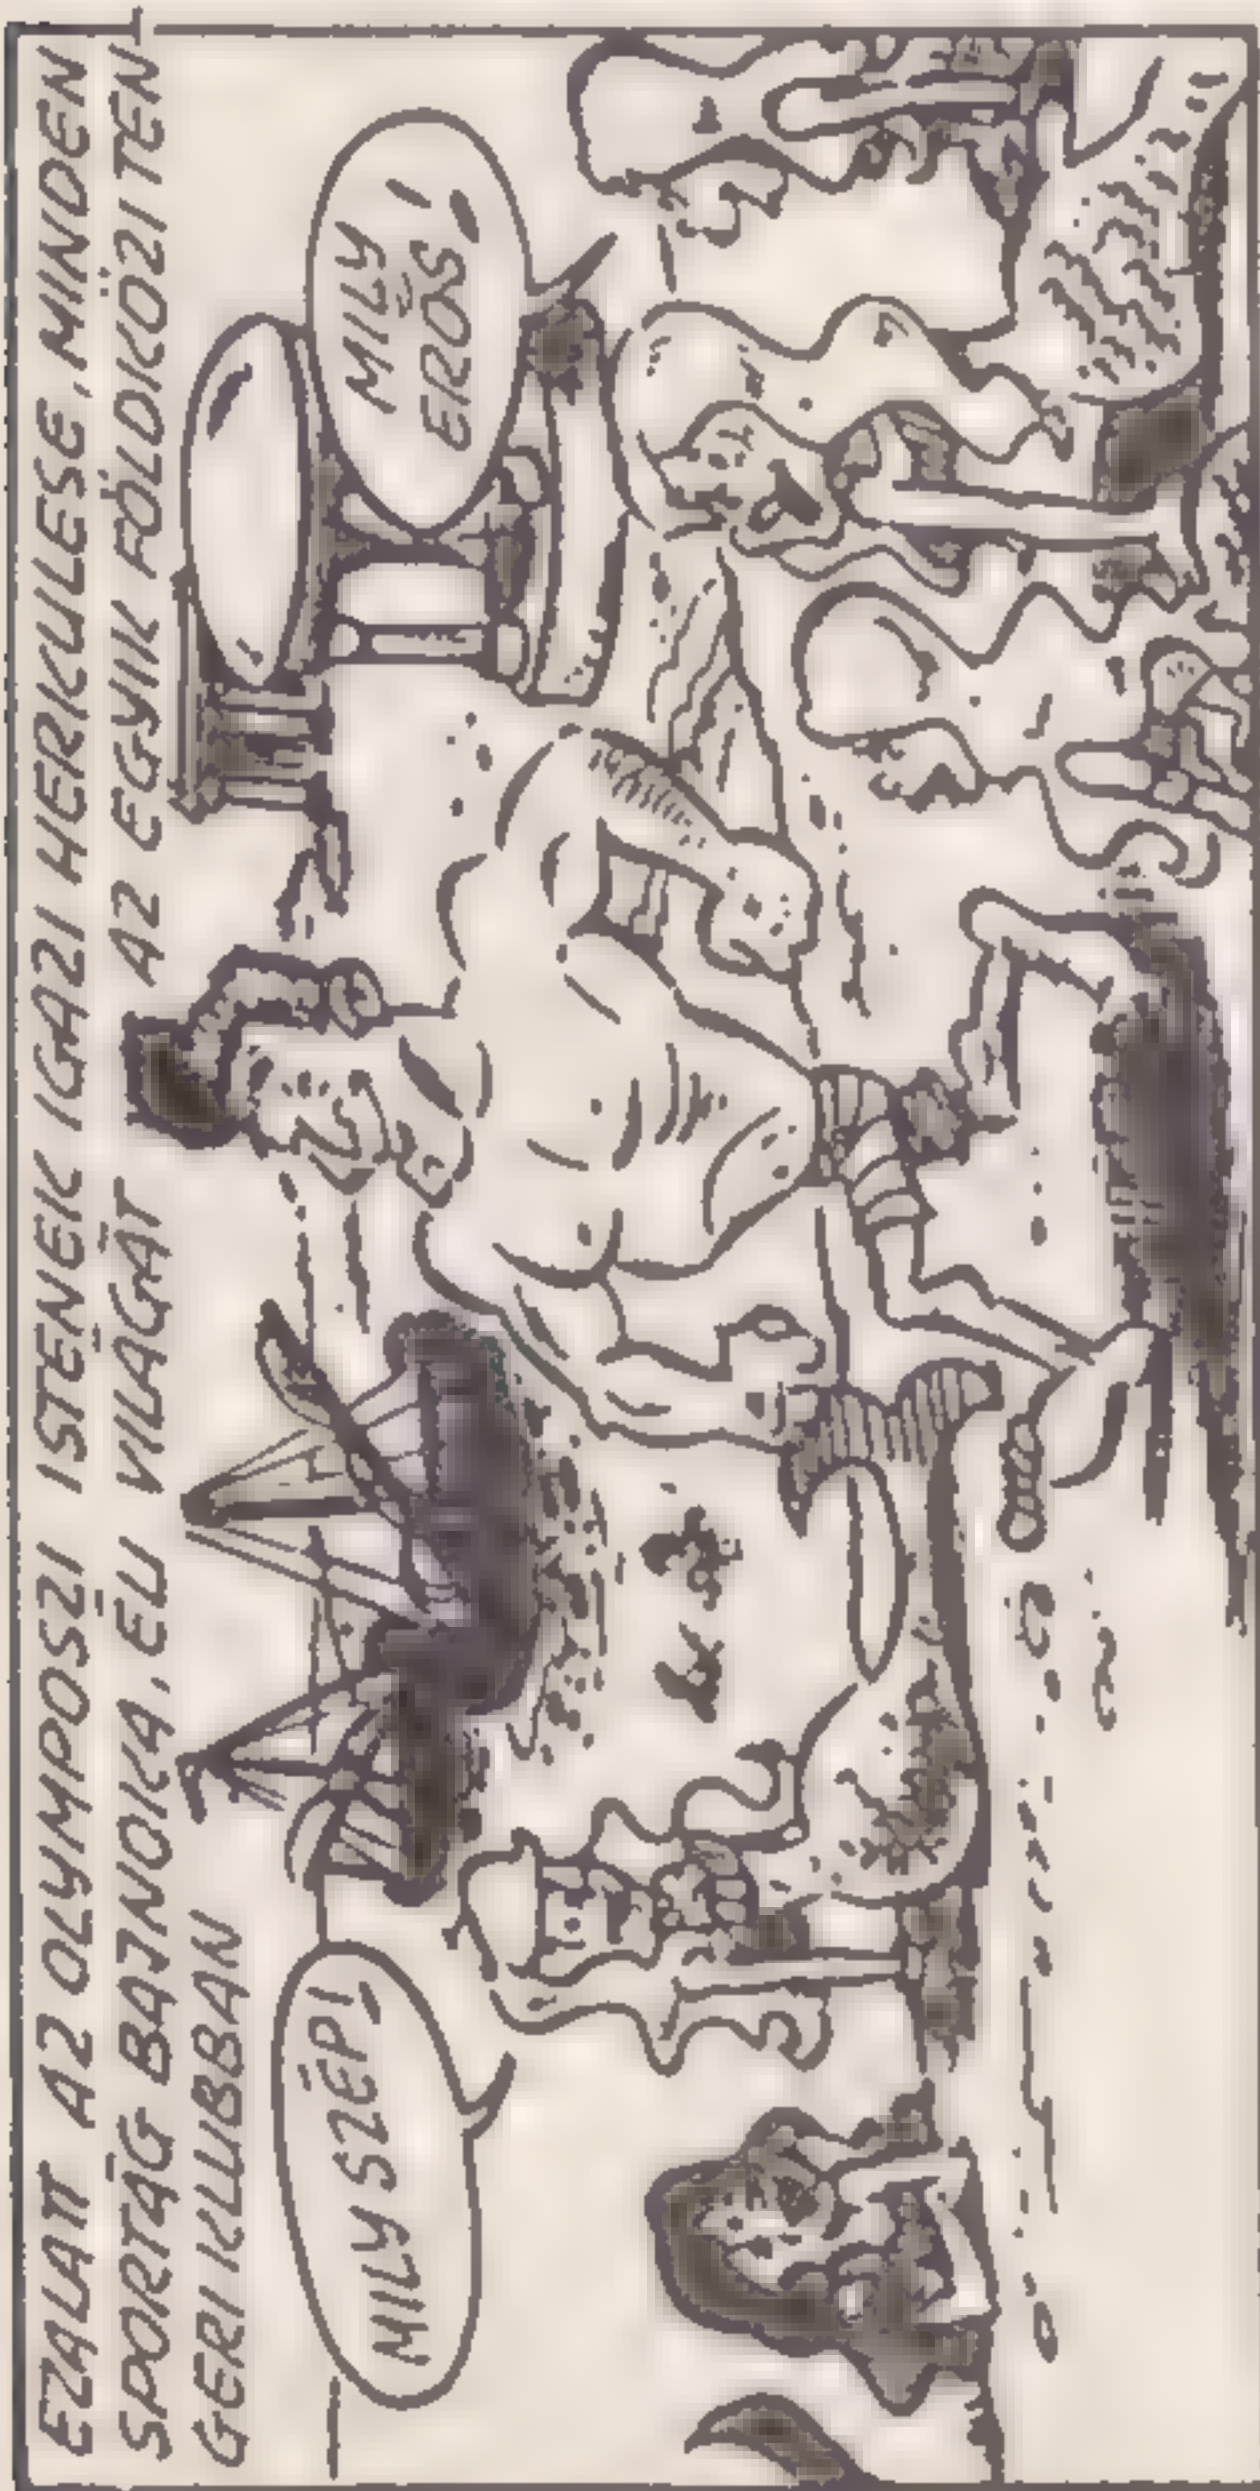 EZALATT AZ OLYMPOSZI ISTENEK IGAZI HERKULESE, MINDEN
SPORTÁG BAJNOKA, ÉLI VILÁGÁT AZ EGYIK FÖLDKÖZI TEN-
GERI KLUBBAN
MILY SZÉP!
MILY
ERŐS!